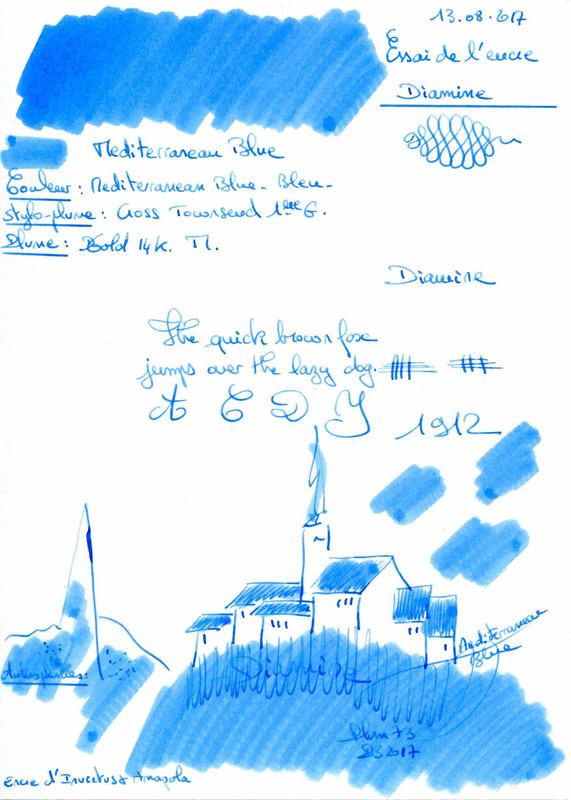 13.08.2017
Essai de l'encre
Diamine
Mediterranean Blue
Couleur : Mediterranean Blue - Bleu -
stylo-plume : Cross Townsend 1ère G.
Plume : Gold 14K. M.
Diamine
The quick brown fox
jumps over the lazy dog.
A C D J
1912
Mediterranean
Blue
Diamine
Autres plumes :
2017
Encre d'Inuretusa Amapola